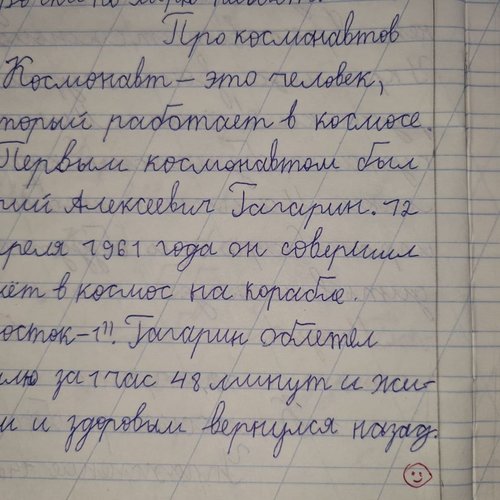 Про космонавтов
Космонавт – это человек,
торый работает в космосе.
Первым космонавтом был
рий Алексеевич Гагарин. 12
преля 1961 года он совершил
лёт в космос на корабле.
осток-1". Гагарин облетел
млю за 1 час 48 минут и жи-
м и здоровым вернулся назад.